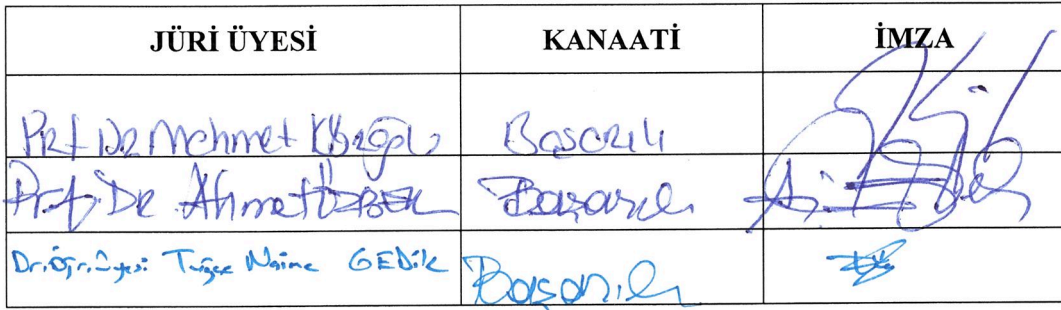 JÜRİ ÜYESİ KANAATİ İMZA
Prf Dr Mehmet Başarılı
Prof. Dr Ahmet ÖZBEK Başarılı
Dr. Öğr. Üyesi Tuğçe Naime GEDİK Başarılı